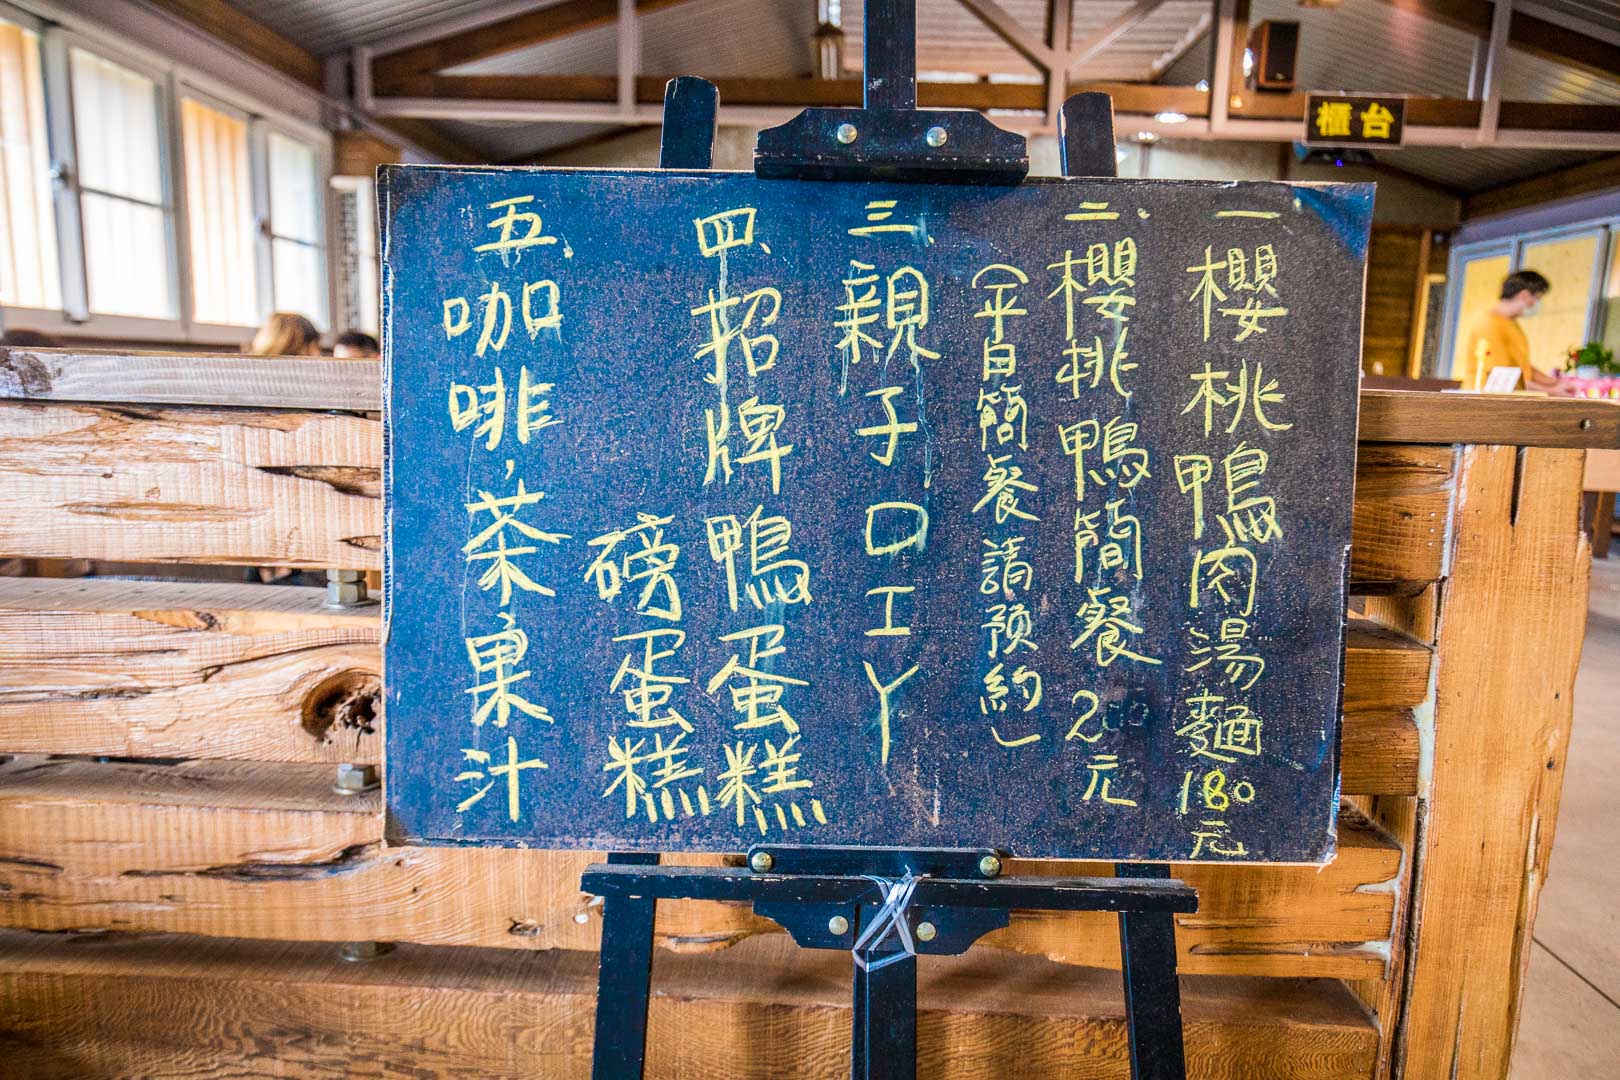 櫃台
一、櫻桃鴨肉湯麵180元
二、櫻桃鴨簡餐200元
（平日簡餐請預約）
三、親子ロエ丫
四、招牌鴨蛋糕
磅蛋糕
五、咖啡,茶,果汁